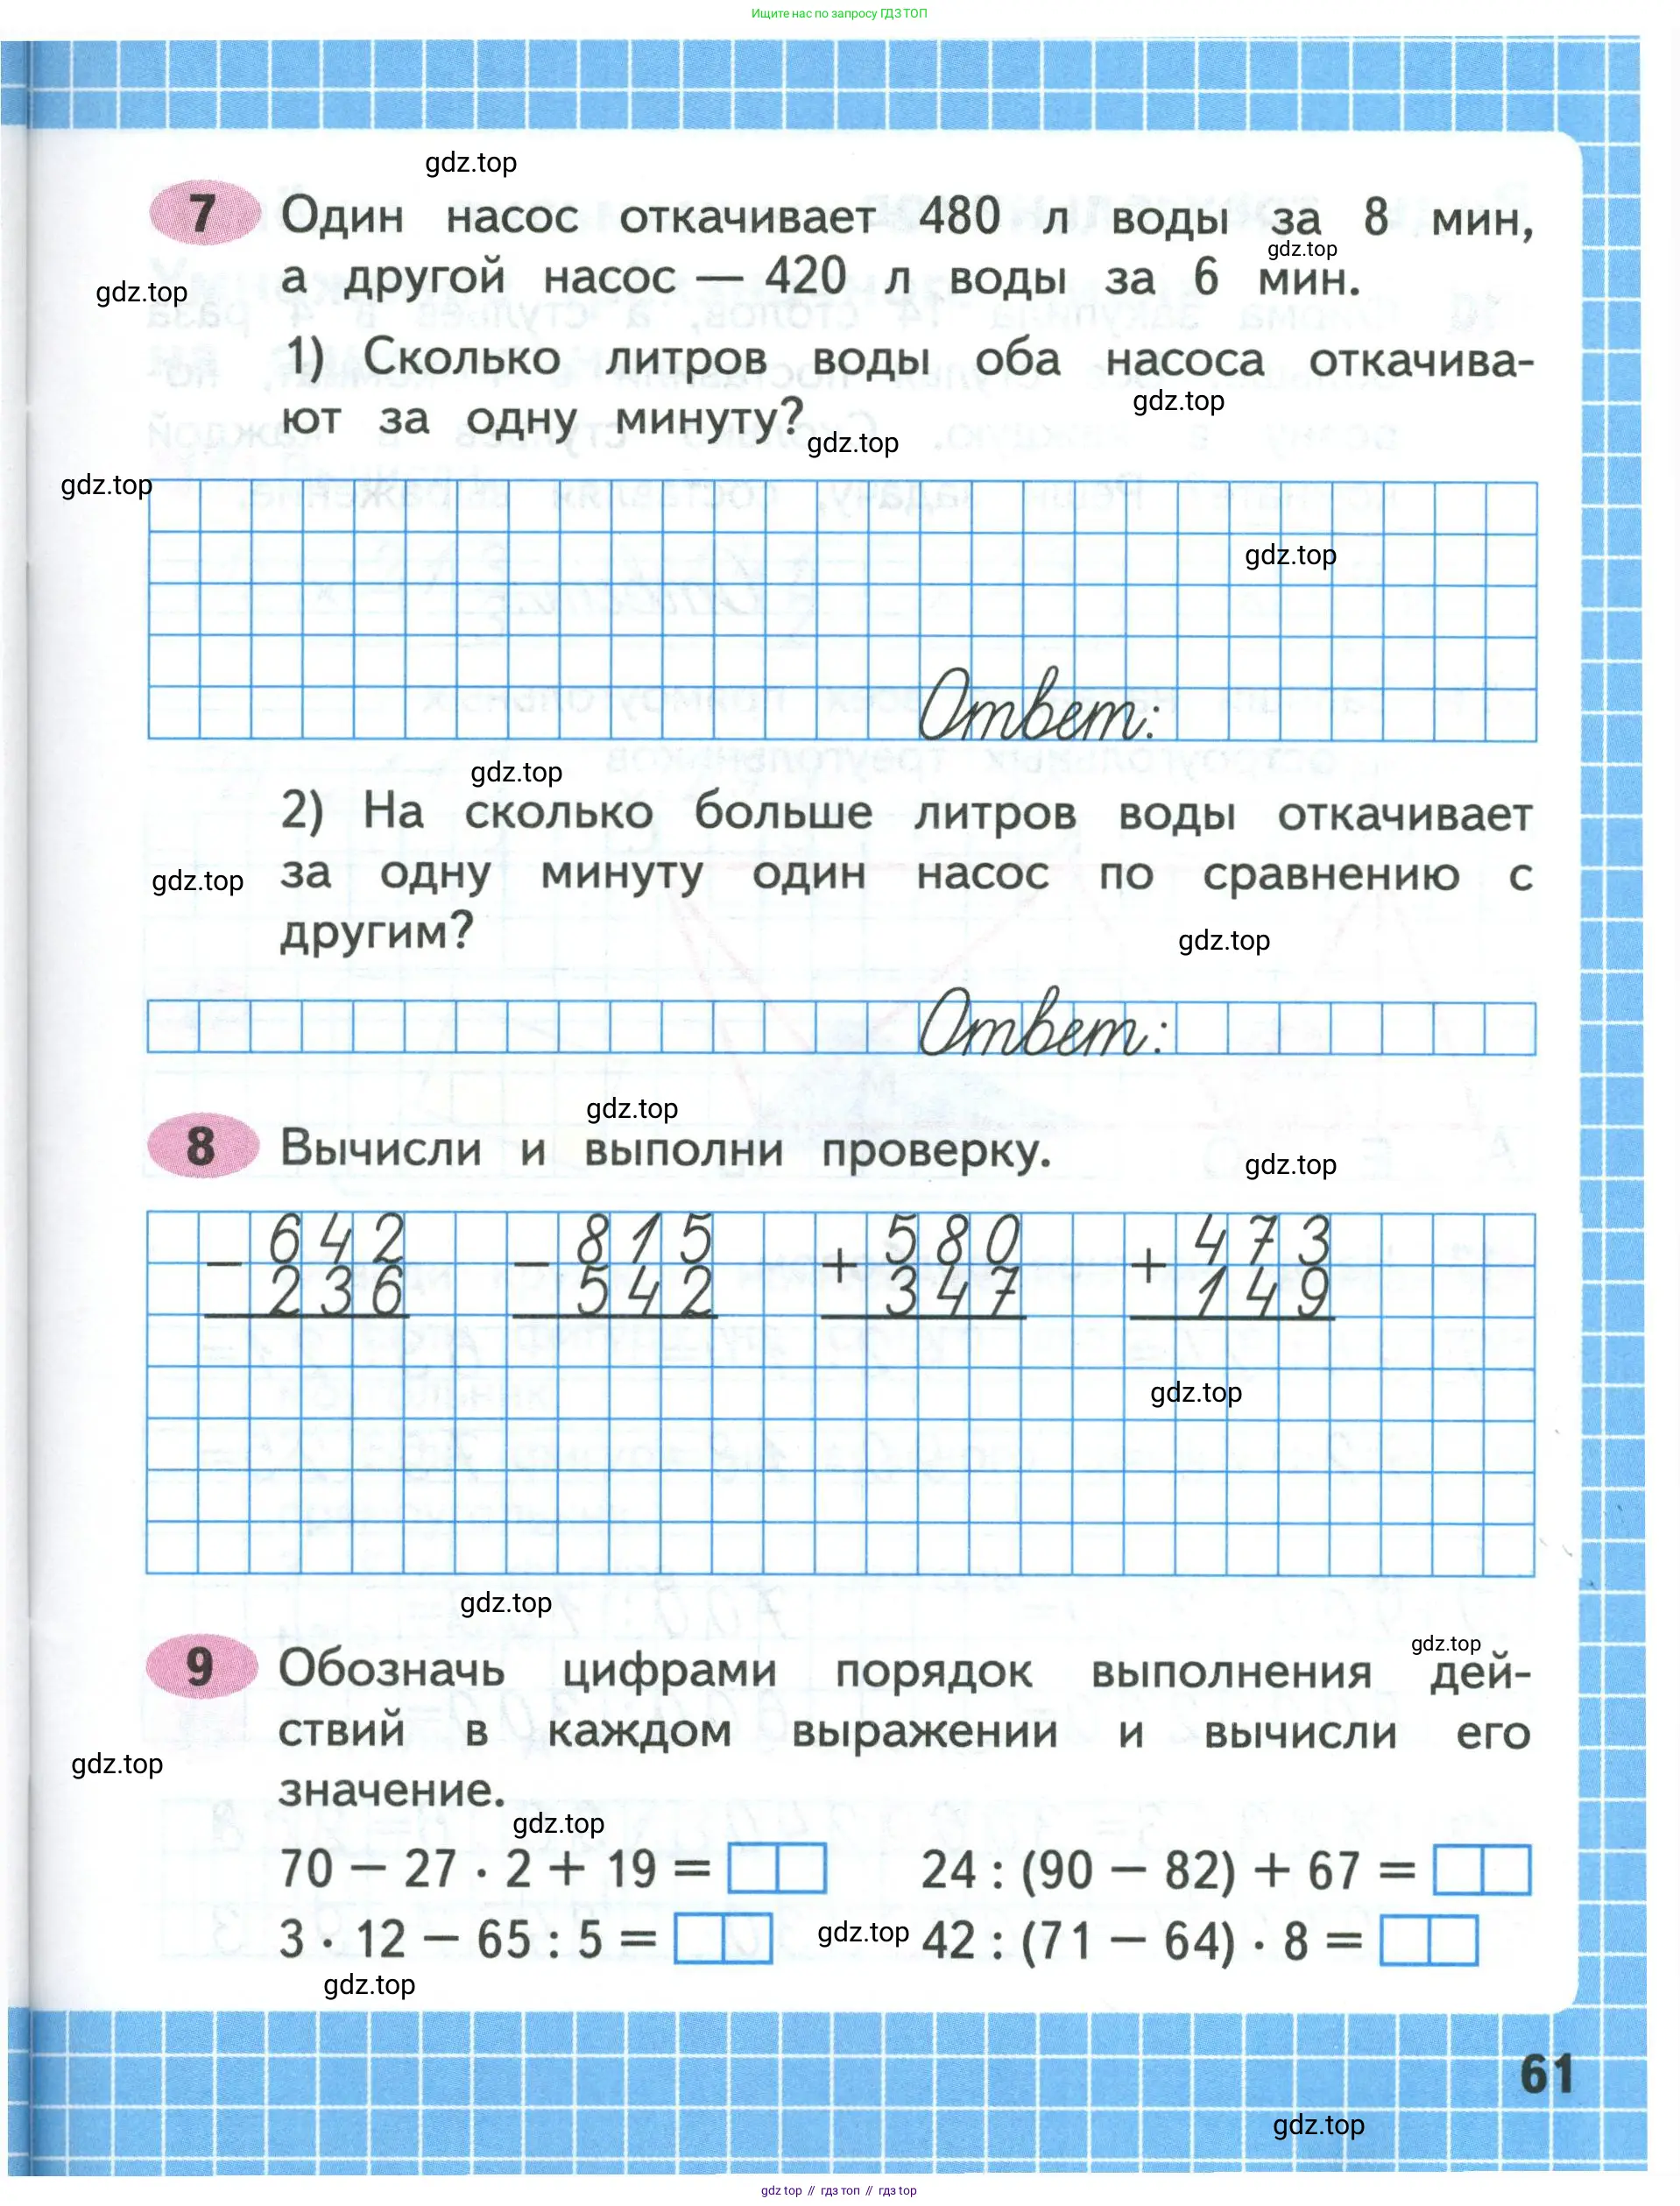 Ищите нас по запросу ГДЗ ТОП
gdz.top
7 Один насос откачивает 480 л воды за 8 мин,
gdz.top
а другой насос — 420 л воды за 6 мин.
gdz.top
1) Сколько литров воды оба насоса откачива-
gdz.top
ют за одну минуту?
gdz.top
gdz.top
gdz.top
Ответ:
gdz.top
2) На сколько больше литров воды откачивает
gdz.top
за одну минуту один насос по сравнению с
другим?
gdz.top
Ответ:
gdz.top
8 Вычисли и выполни проверку.
gdz.top
− 642 − 815 + 580 + 473
236 542 347 149
gdz.top
gdz.top
gdz.top
9 Обозначь цифрами порядок выполнения дей-
ствий в каждом выражении и вычисли его
gdz.top
значение.
gdz.top
70 − 27 · 2 + 19 = 24 : (90 − 82) + 67 =
3 · 12 − 65 : 5 = gdz.top 42 : (71 − 64) · 8 =
gdz.top
61
gdz.top
gdz top // гдз топ // гдз top